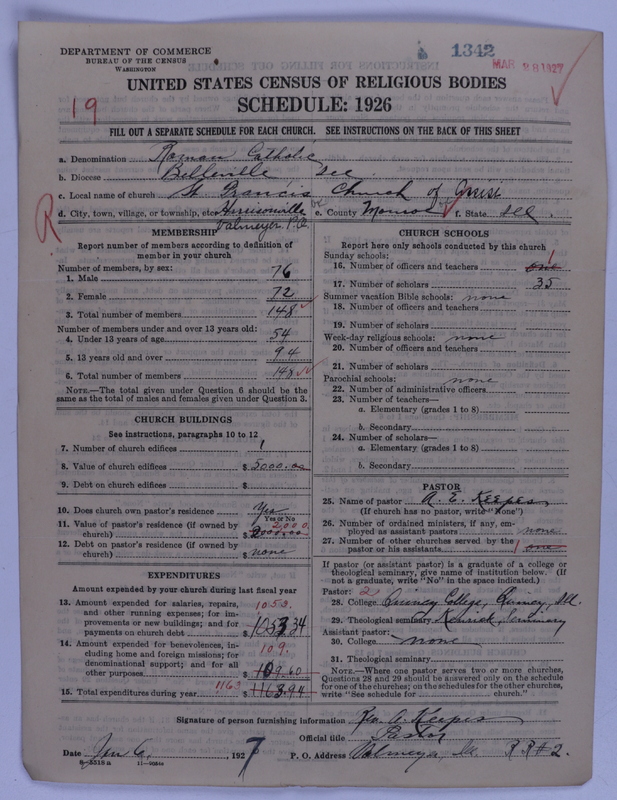 DEPARTMENT OF COMMERCE
BUREAU OF THE CENSUS
WASHINGTON
1342
MAR 28 1927
19
UNITED STATES CENSUS OF RELIGIOUS BODIES
SCHEDULE: 1926
FILL OUT A SEPARATE SCHEDULE FOR EACH CHURCH. SEE INSTRUCTIONS ON THE BACK OF THIS SHEET
a. Denomination Roman Catholic
b. Diocese Belleville Ill.
c. Local name of church St. Francis Church of
d. City, town, village, or township, etc. Harrisonville e. County Monroe f. State Ill.
Valmeyer P.O.
R
MEMBERSHIP
Report number of members according to definition of
member in your church
Number of members, by sex:
1. Male 76
2. Female 72
3. Total number of members 148
Number of members under and over 13 years old:
4. Under 13 years of age 54
5. 13 years old and over 94
6. Total number of members 148
NOTE.—The total given under Question 6 should be the
same as the total of males and females given under Question 3.
CHURCH BUILDINGS
See instructions, paragraphs 10 to 12
7. Number of church edifices 1
8. Value of church edifices $ 5000.00
9. Debt on church edifices $
10. Does church own pastor's residence Yes
Yes or No
11. Value of pastor's residence (if owned by
church) $ 2000.00
2000.
12. Debt on pastor's residence (if owned by
church) $ none
EXPENDITURES
Amount expended by your church during last fiscal year
13. Amount expended for salaries, repairs,
and other running expenses; for im-
provements or new buildings; and for
payments on church debt $ 1053.34
1053.
14. Amount expended for benevolences, in-
cluding home and foreign missions; for
denominational support; and for all
other purposes $ 109.60
109.
15. Total expenditures during year 1163 $ 1163.94
CHURCH SCHOOLS
Report here only schools conducted by this church
Sunday schools:
16. Number of officers and teachers one 1
17. Number of scholars 35
Summer vacation Bible schools: none
18. Number of officers and teachers
19. Number of scholars
Week-day religious schools: none
20. Number of officers and teachers
21. Number of scholars
Parochial schools: none
22. Number of administrative officers
23. Number of teachers—
a. Elementary (grades 1 to 8)
b. Secondary
24. Number of scholars—
a. Elementary (grades 1 to 8)
b. Secondary
PASTOR
25. Name of pastor A. E. Keepes
(If church has no pastor, write "None")
26. Number of ordained ministers, if any, em-
ployed as assistant pastors none
27. Number of other churches served by the
pastor or his assistants 1 one
If pastor (or assistant pastor) is a graduate of a college or
theological seminary, give name of institution below. (If
not a graduate, write "No" in the space indicated.)
Pastor: 2
28. College Quincy College, Quincy, Ill.
29. Theological seminary Kenrick Seminary
Assistant pastor:
30. College none
31. Theological seminary
NOTE.—Where one pastor serves two or more churches,
Questions 28 and 29 should be answered only on the schedule
for one of the churches; on the schedules for the other churches,
write "See schedule for church."
Signature of person furnishing information Rev. A. Keepes
Official title Pastor
Date Jan 6, 1927
P. O. Address Valmeyer, Ill. RR #2.
8-551S a